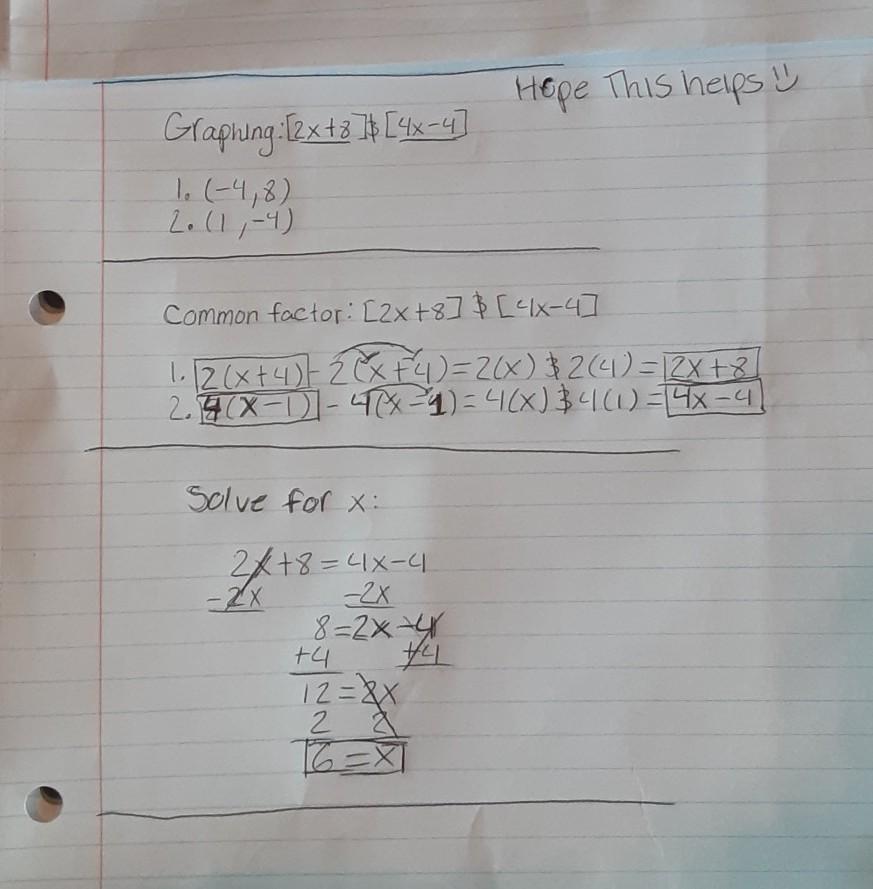 Hope This helps :)
Graphing: [2x+8] & [4x-4]
1. (-4,8)
2. (1,-4)
Common factor: [2x+8] & [4x-4]
1. 2(x+4) - 2(x+4) = 2(x) & 2(4) = 2x+8
2. 4(x-1) - 4(x-1) = 4(x) & 4(1) = 4x-4
Solve for x:
2x+8=4x-4
-2x -2x
8=2x-4
+4 +4
12=2x
2 2
6=x